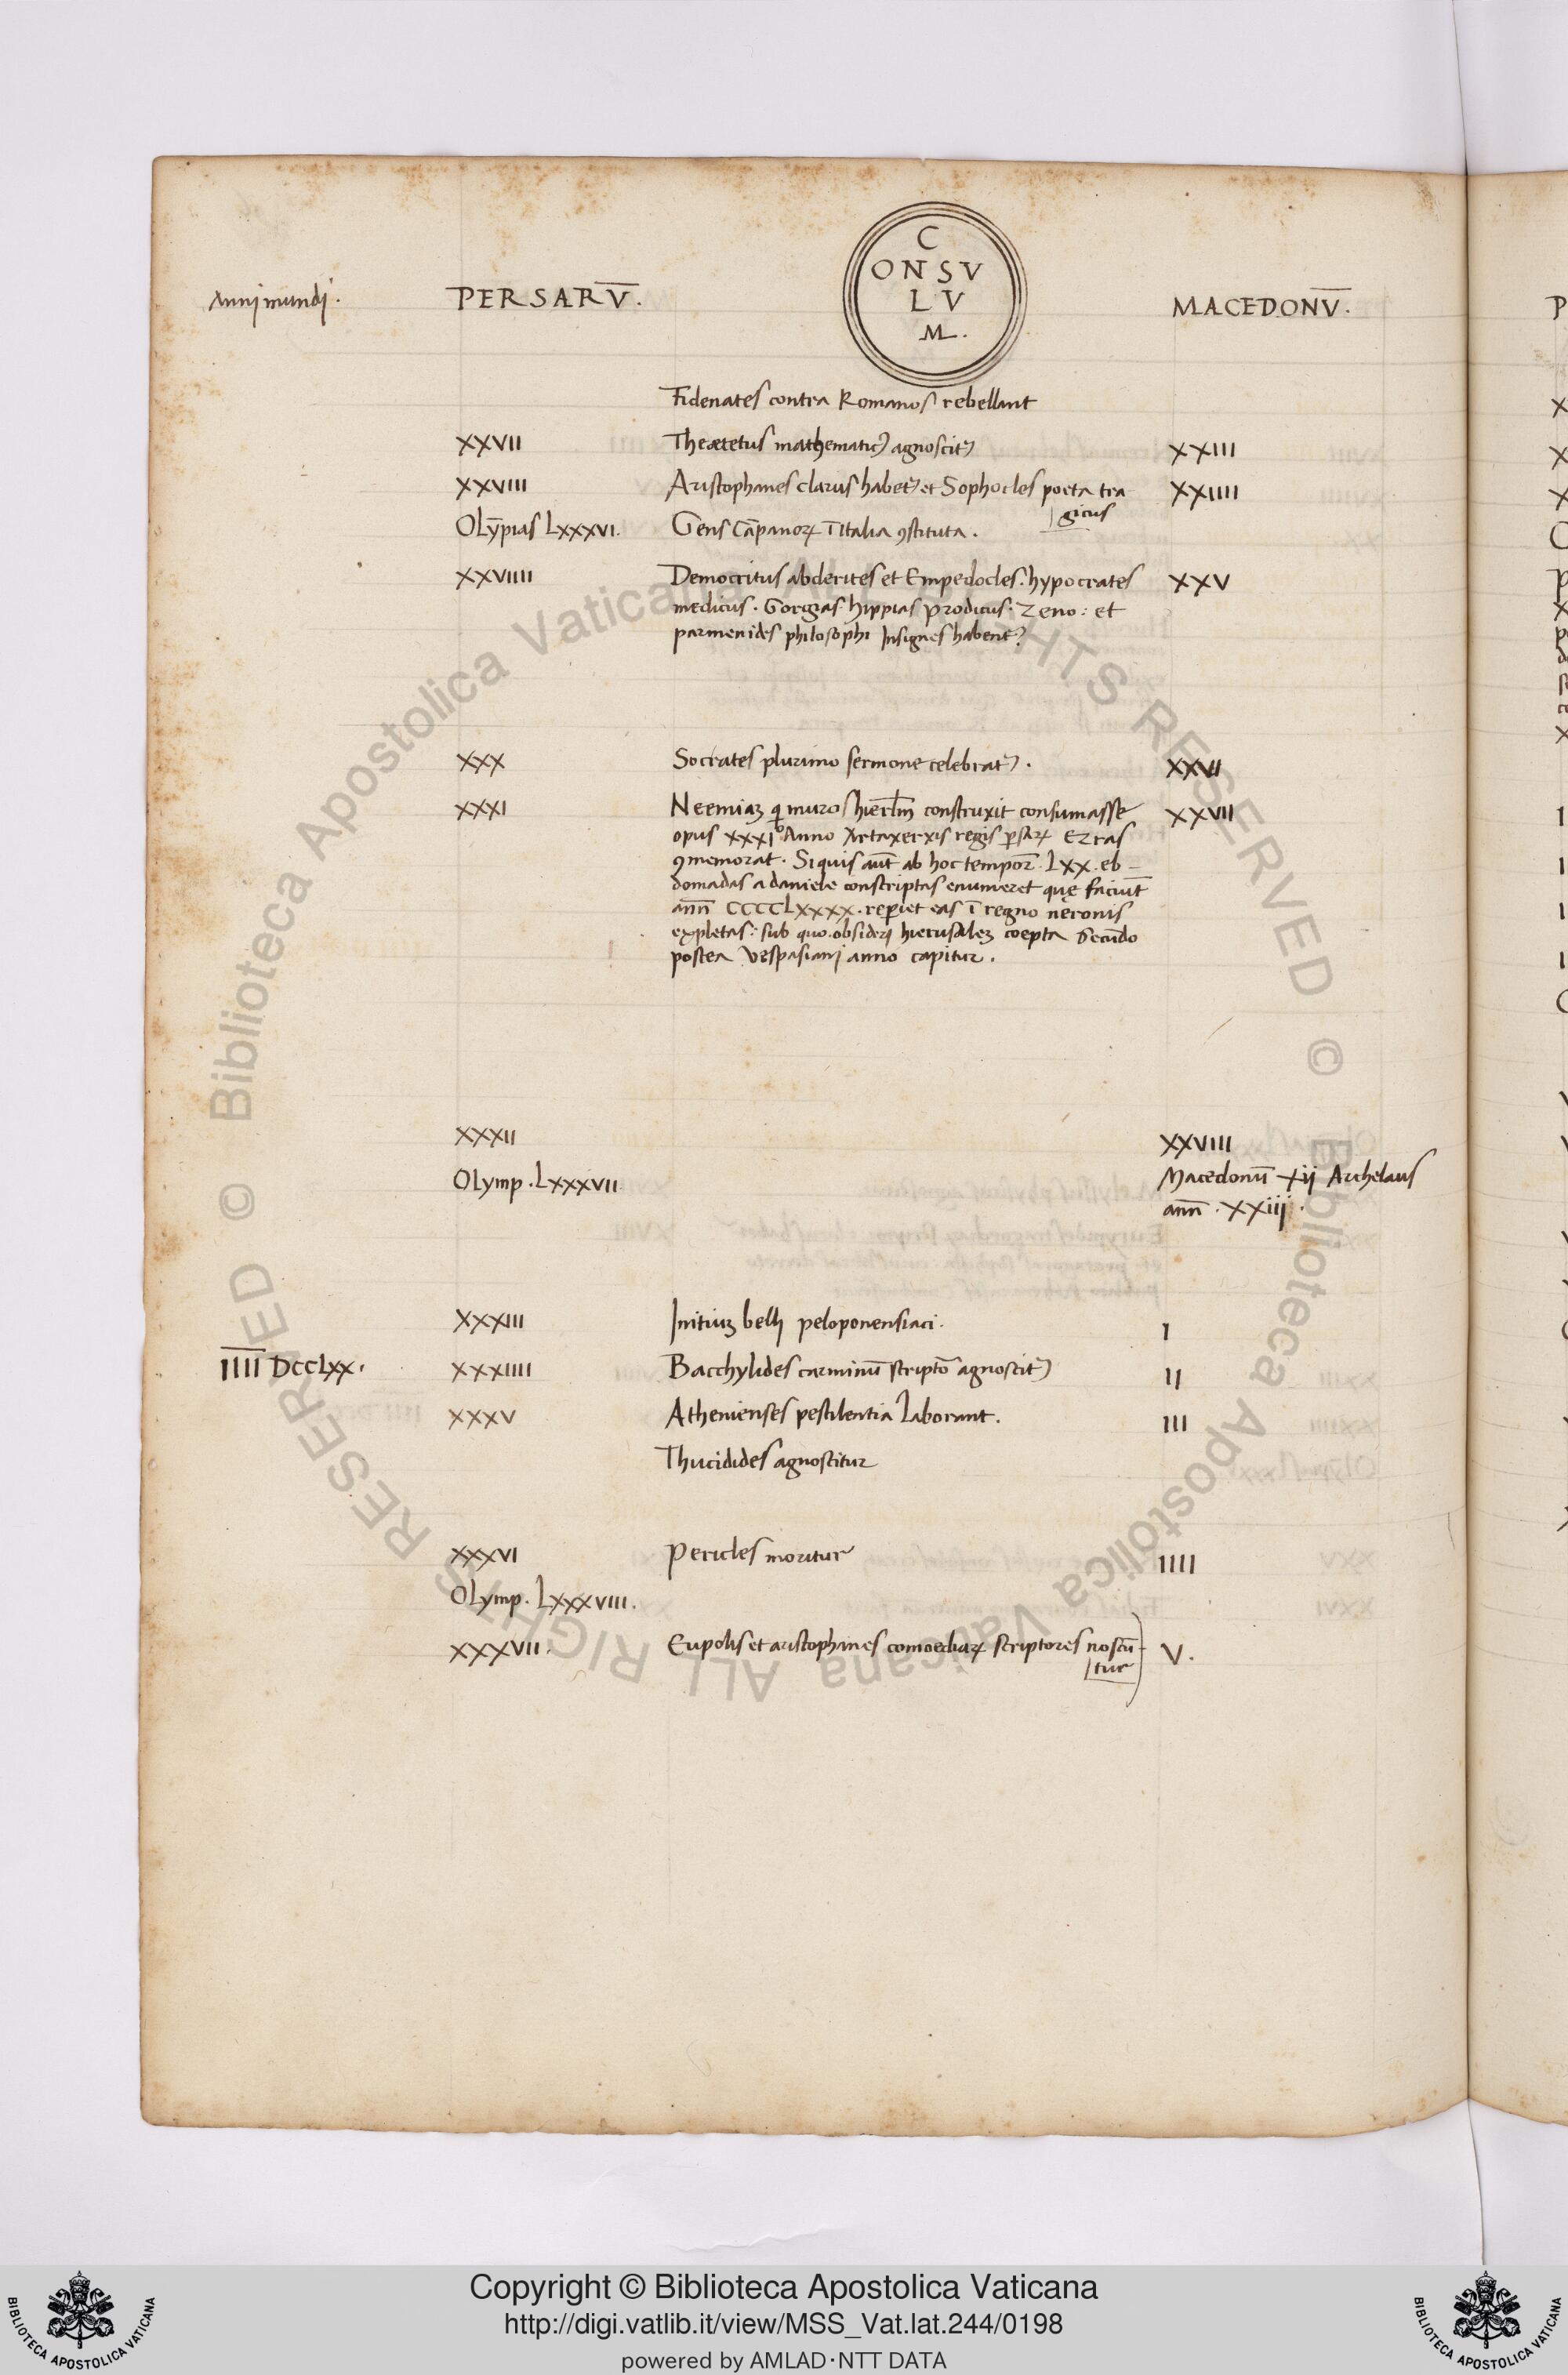 Anni mundi.
PERSARV̅.
C
ONSV
LV
M.
MACEDONV̅.
Fidenates contra Romanos rebellant
XXVII Theætetus mathematicꝰ agnoscit᷒ XXIII
XXVIII Aristophanes clarus habet᷒ et Sophocles poeta tra XXIIII
gicus
OLȳpias LXXXVI. Gens Cāpanoꝝ ī Italia ꝯstituta.
XXVIIII Democritus abderites et Empedocles. hypocrates XXV
medicus. Gorgias. hippias prodicus. Zeno: et
parmenides philosophi Insignes habent᷒
XXX Socrates plurimo sermone celebrat᷒. XXVII
XXXI Neemiaꝫ qi muros hierl̅m construxit consumasse XXVII
opus XXXIº Anno Artaxerxis regis ꝑsaꝝ Ezras
ꝯmemorat. Si quis aūt ab hoc tempor̅. LXX. eb-
domadas a daniele conscriptas enumeret quę faciūt
an̅n̅ CCCCLXXXX. reꝑiet eas ī regno neronis
expletas: sub quo obsideri hierusaleꝫ coepta Secūdo
postea Vespasiani anno capitur.
XXXII XXVIII
OLymp. LXXXVII Macedonū xii Archelaus
an̅n̅. XXiii.
XXXIII Initiuꝫ belli peloponensiaci. I
I̅I̅I̅I̅ DCCLXX. XXXIIII Bacchylides carminū scriptō agnoscit᷒ II
XXXV Athenienses pestilentia Laborant. III
Thucidides agnoscitur
XXXVI Pericles moritur IIII
OLymp. LXXXVIII.
XXXVII. Eupolis et aristophanes comoediaꝝ scriptores noscū- V.
tur
© Biblioteca Apostolica Vaticana ALL RIGHTS RESERVED © Biblioteca Apostolica Vaticana ALL RIGHTS RESERVED
Copyright © Biblioteca Apostolica Vaticana
http://digi.vatlib.it/view/MSS_Vat.lat.244/0198
powered by AMLAD·NTT DATA
BIBLIOTECA APOSTOLICA VATICANA
BIBLIOTECA APOSTOLICA VATICANA